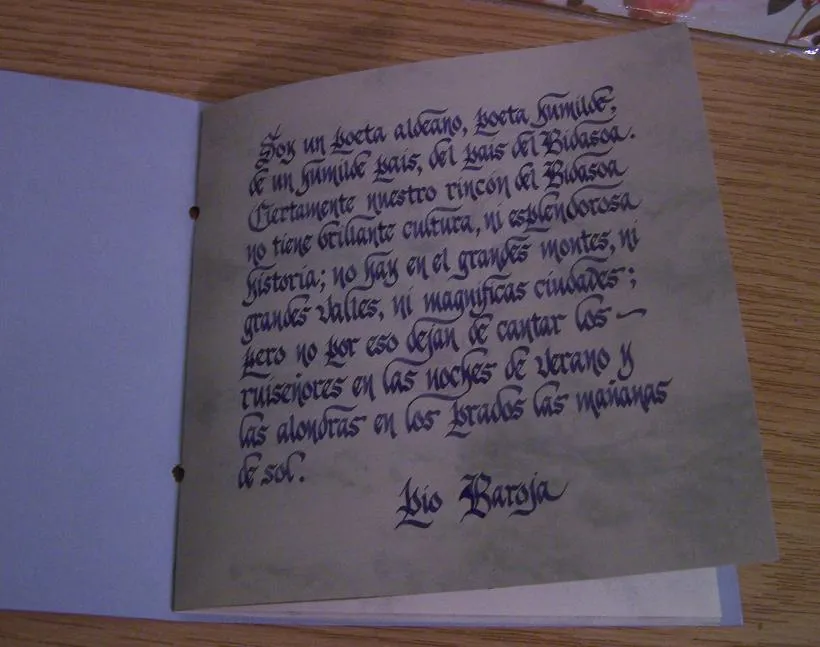 Soy un poeta aldeano, poeta humilde,
de un humilde país, del país del Bidasoa.
Ciertamente nuestro rincón del Bidasoa
no tiene brillante cultura, ni esplendorosa
historia; no hay en el grandes montes, ni
grandes valles, ni magnificas ciudades;
pero no por eso dejan de cantar los —
ruiseñores en las noches de verano y
las alondras en los prados las mañanas
de sol.
Pio Baroja